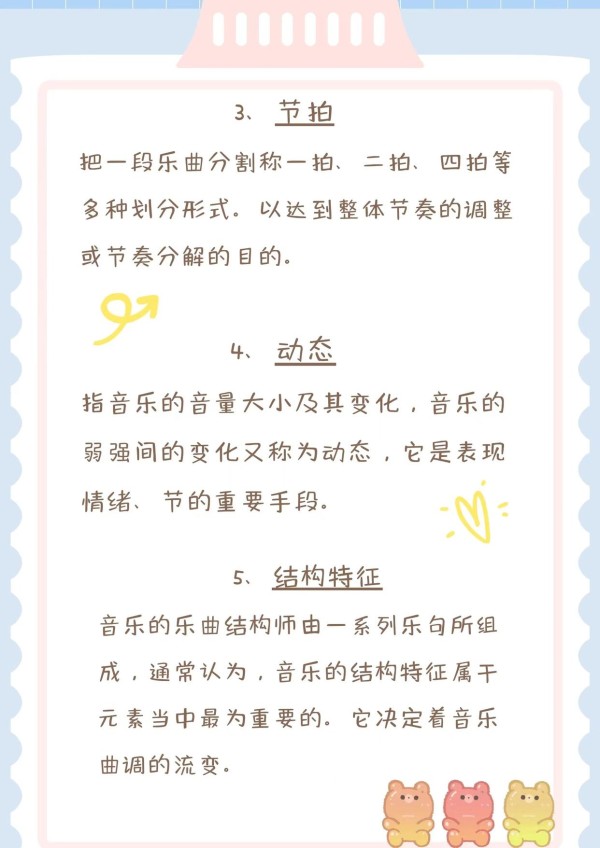 3、 节拍
把一段乐曲分割称一拍、二拍、四拍等
多种划分形式。以达到整体节奏的调整
或节奏分解的目的。
4、 动态
指音乐的音量大小及其变化,音乐的
弱强间的变化又称为动态,它是表现
情绪、节的重要手段。
5、 结构特征
音乐的乐曲结构师由一系列乐句所组
成,通常认为,音乐的结构特征属干
元素当中最为重要的。它决定着音乐
曲调的流变。